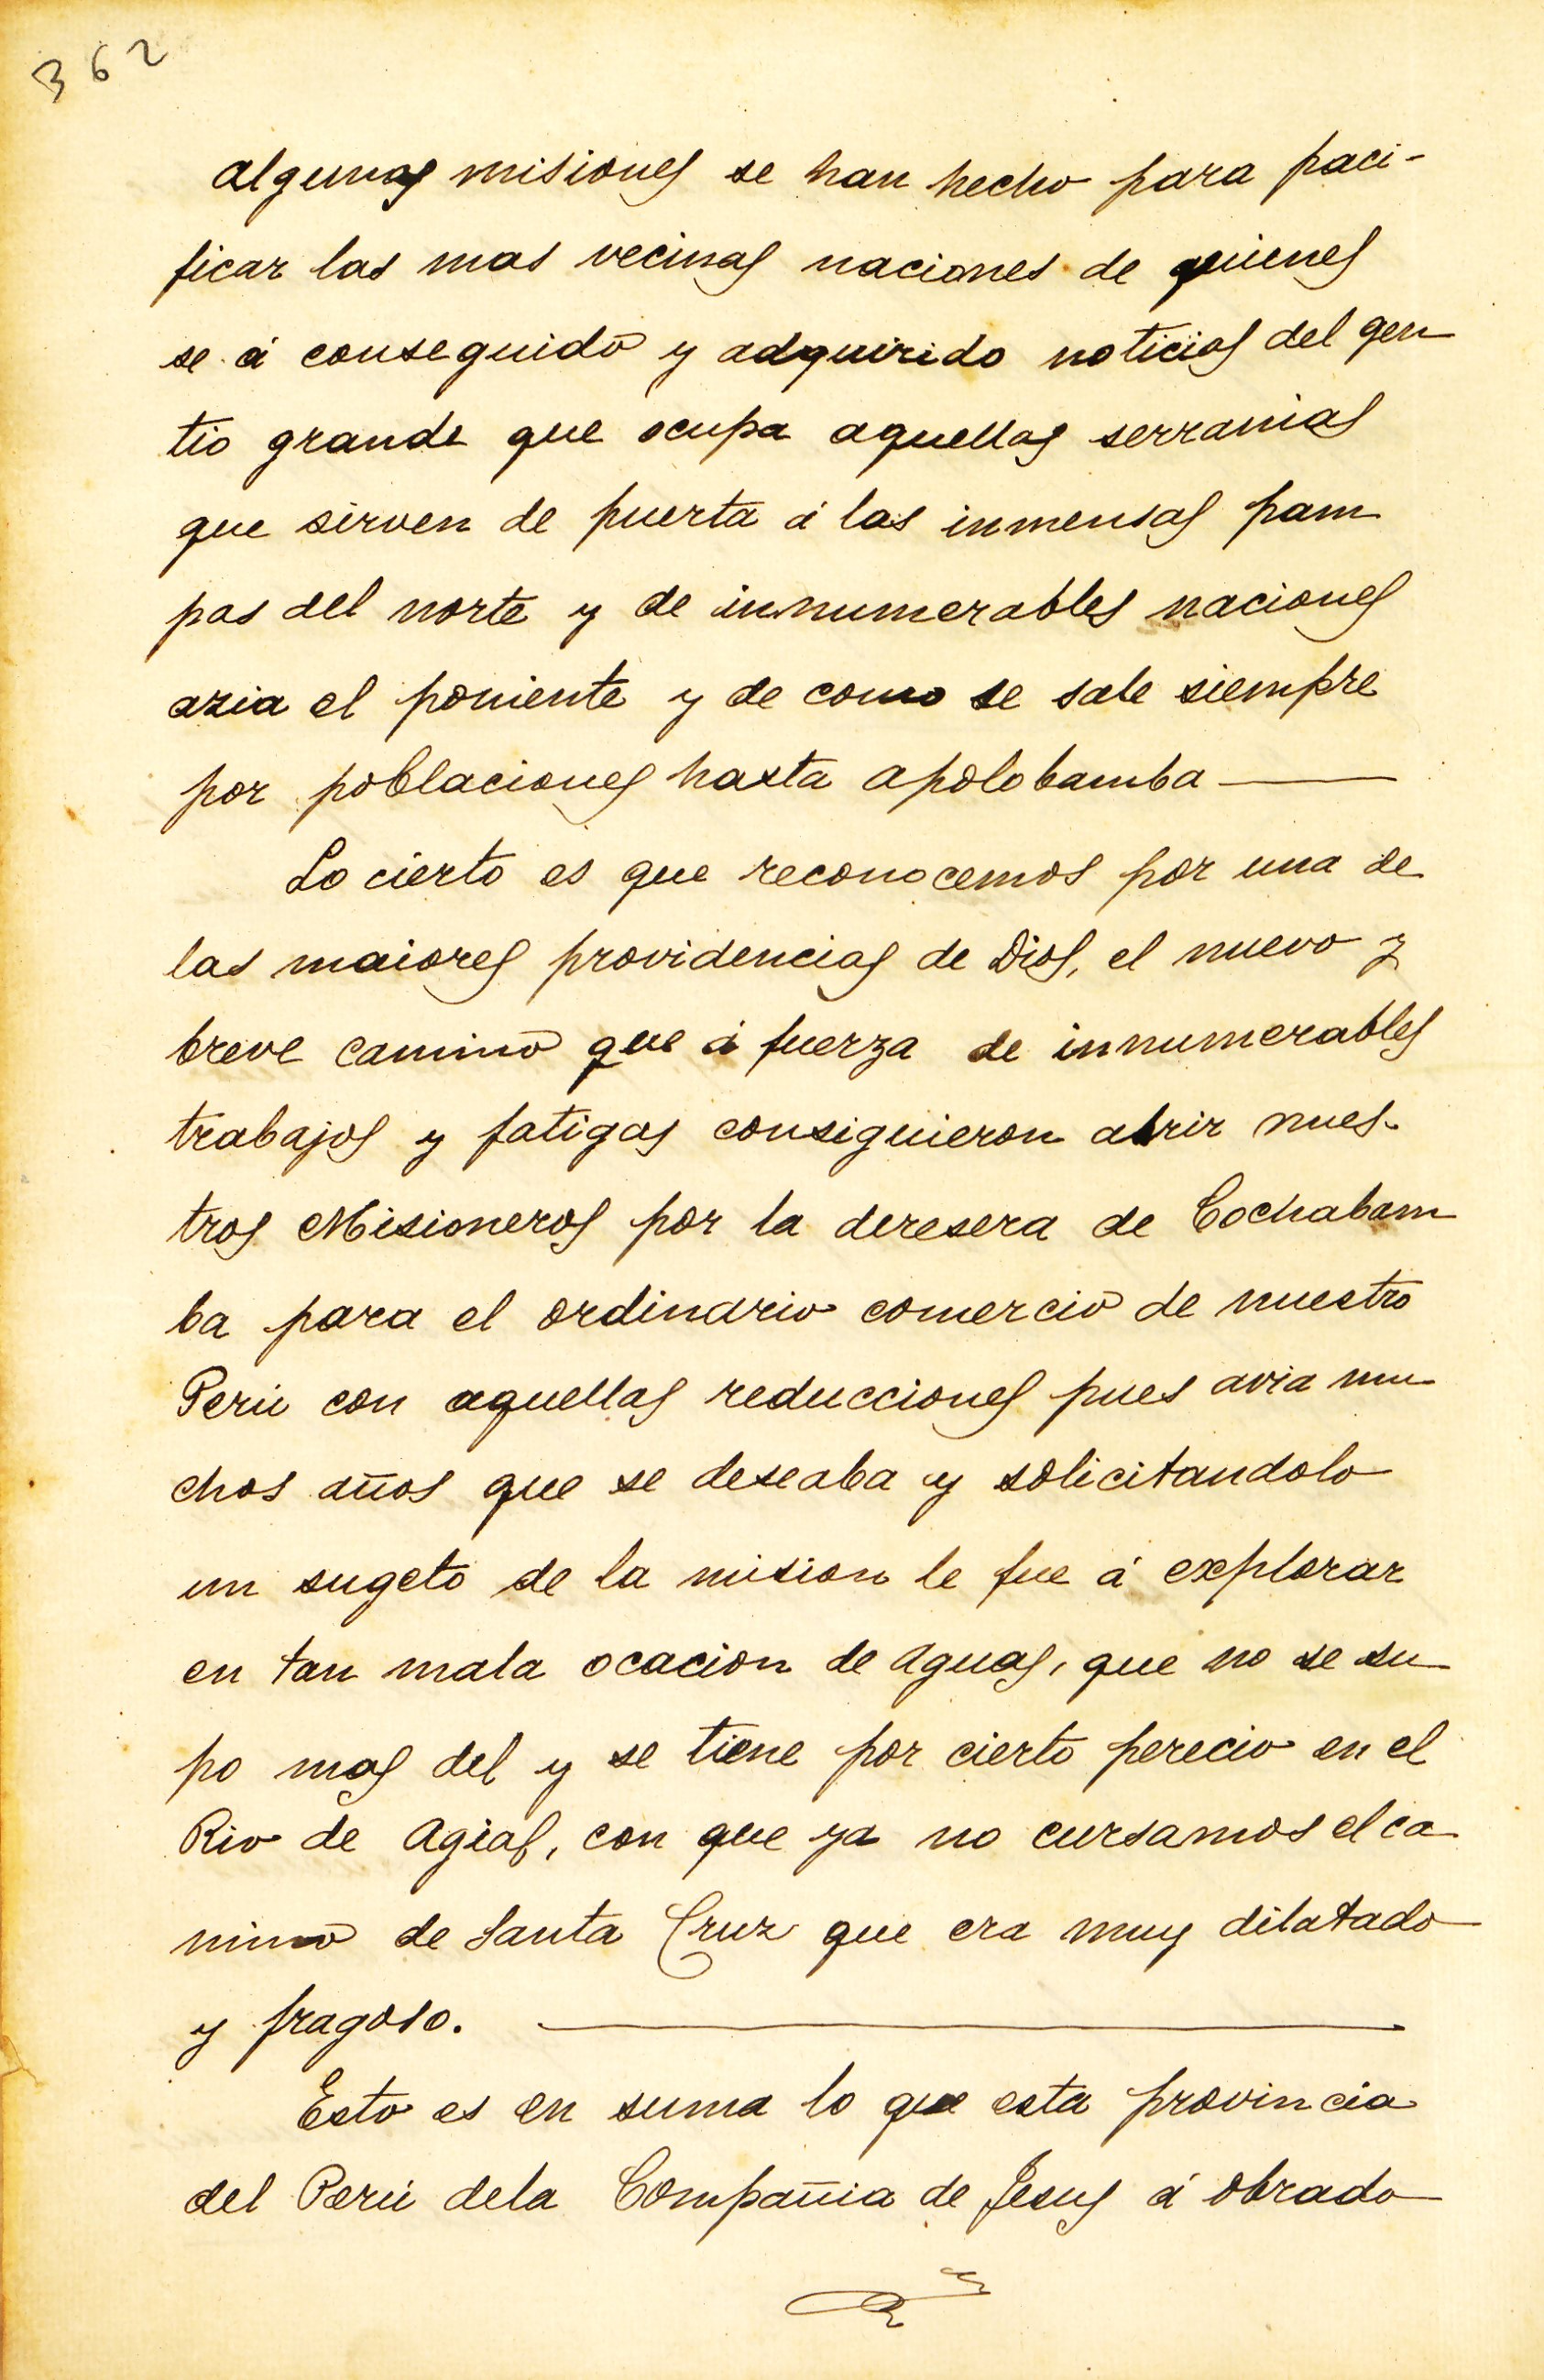 362
algunas misiones se han hecho para paci-
ficar las mas vecinas naciones de quienes
se á conseguido y adquirido noticias del gen
tio grande que ocupa aquellas serranias
que sirven de puerta á las inmensas pam
pas del norte y de innumerables naciones
azia el poniente y de como se sale siempre
por poblaciones hasta apolobamba
Lo cierto es que reconocemos por una de
las maiores providencias de Dios, el nuevo y
breve camino que á fuerza de innumerables
trabajos y fatigas consiguieron abrir nues-
tros Misioneros por la deresera de Cochabam
ba para el ordinario comercio de nuestro
Perú con aquellas reducciones pues avia mu
chos años que se deseaba y solicitandolo
un sugeto de la mision le fue á explorar
en tan mala ocacion de aguas, que no se su
po mas del y se tiene por cierto perecio en el
Rio de Agias, con que ya no cursamos el ca
mino de Santa Cruz que era muy dilatado
y fragoso.
Esto es en suma lo que esta provincia
del Perú dela Compañia de Jesus á obrado